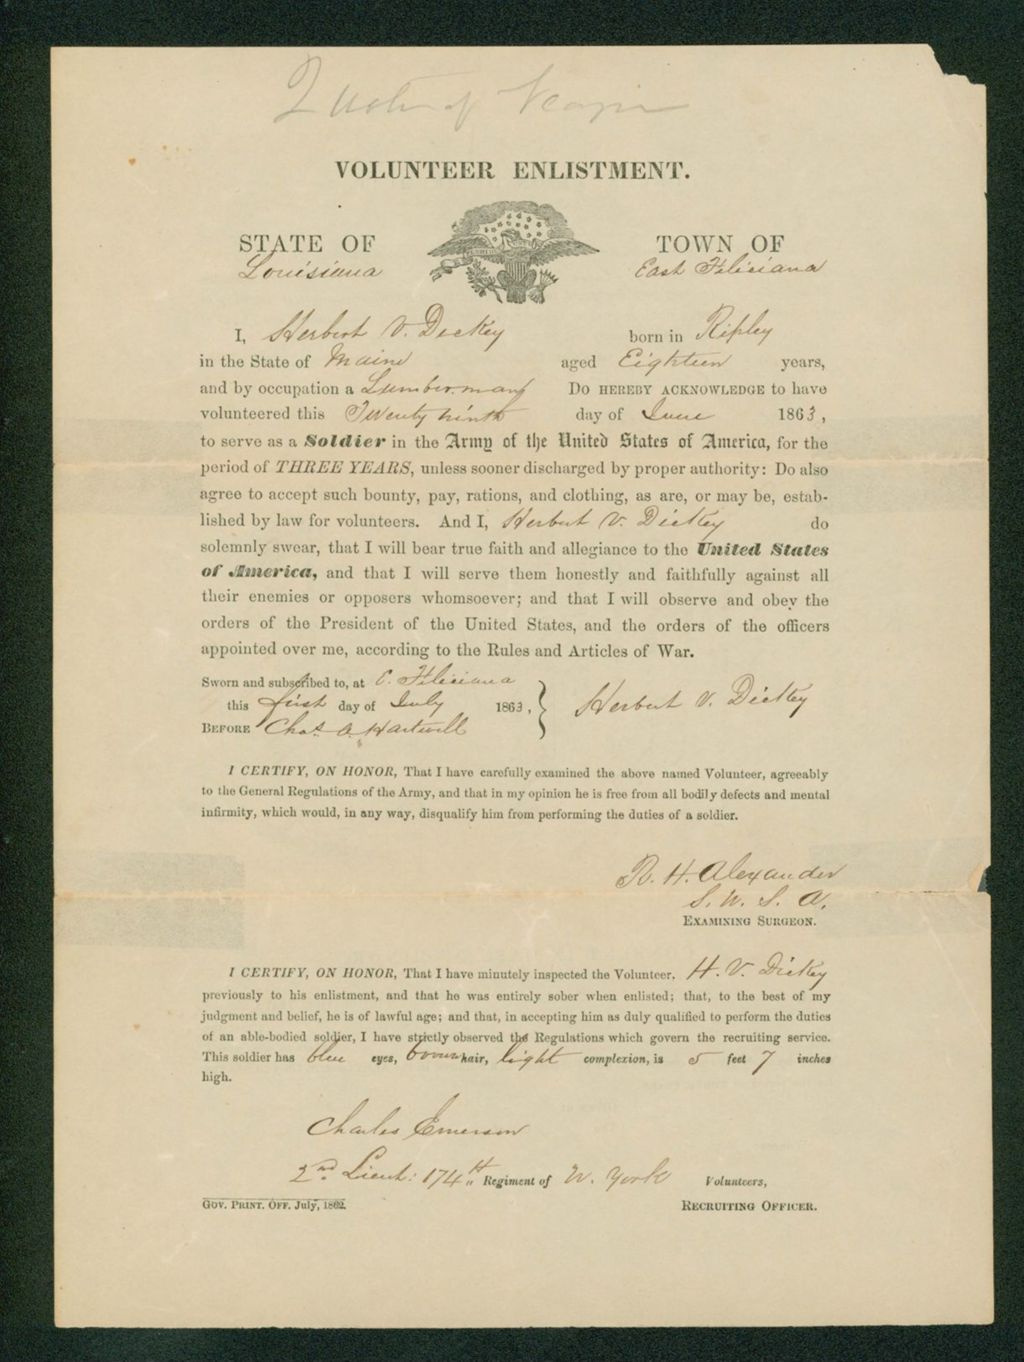 VOLUNTEER ENLISTMENT.
STATE OF TOWN OF
Louisiana East Filiciana
I, Herbert V. Dickey born in Ripley
in the State of Maine aged Eighteen years,
and by occupation a Lumberman DO HEREBY ACKNOWLEDGE to have
volunteered this Twenty ninth day of June 1863,
to serve as a Soldier in the Army of the United States of America, for the
period of THREE YEARS, unless sooner discharged by proper authority: Do also
agree to accept such bounty, pay, rations, and clothing, as are, or may be, estab-
lished by law for volunteers. And I, Herbert V. Dickey do
solemnly swear, that I will bear true faith and allegiance to the United States
of America, and that I will serve them honestly and faithfully against all
their enemies or opposers whomsoever; and that I will observe and obey the
orders of the President of the United States, and the orders of the officers
appointed over me, according to the Rules and Articles of War.
Sworn and subscribed to, at E. Filiciana
this first day of July 1863, Herbert V. Dickey
BEFORE Chas. A. Hartwell
I CERTIFY, ON HONOR, That I have carefully examined the above named Volunteer, agreeably
to the General Regulations of the Army, and that in my opinion he is free from all bodily defects and mental
infirmity, which would, in any way, disqualify him from performing the duties of a soldier.
R. H. Alexander
S. U. S. A.
EXAMINING SURGEON.
I CERTIFY, ON HONOR, That I have minutely inspected the Volunteer, H. V. Dickey
previously to his enlistment, and that he was entirely sober when enlisted; that, to the best of my
judgment and belief, he is of lawful age; and that, in accepting him as duly qualified to perform the duties
of an able-bodied soldier, I have strictly observed the Regulations which govern the recruiting service.
This soldier has blue eyes, brown hair, light complexion, is 5 feet 7 inches
high.
Charles Emerson
2nd Lieut: 174th Regiment of N. York Volunteers,
GOV. PRINT. OFF. July, 1862. RECRUITING OFFICER.